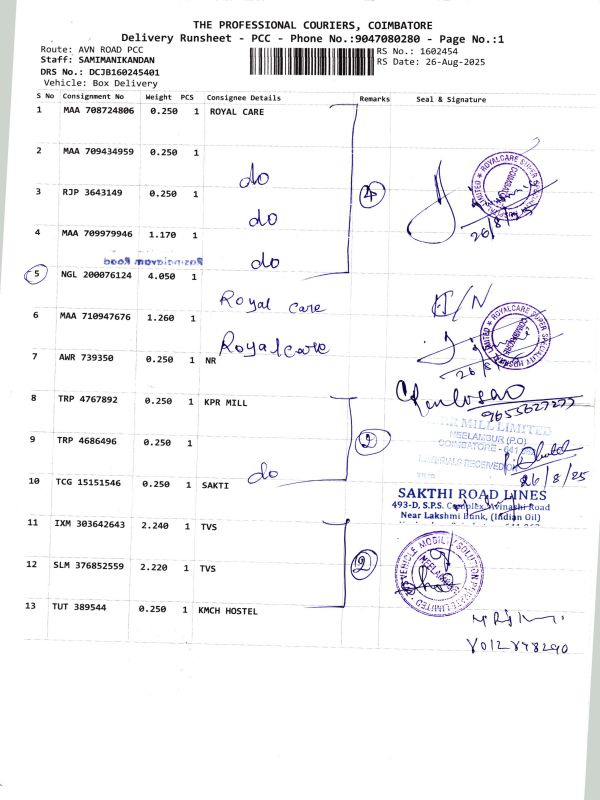 THE PROFESSIONAL COURIERS, COIMBATORE
Delivery Runsheet - PCC - Phone No.:9047080280 - Page No.:1
Route: AVN ROAD PCC
RS No.: 1602454
Staff: SAMIMANIKANDAN
RS Date: 26-Aug-2025
DRS No.: DCJB160245401
Vehicle: Box Delivery
S No Consignment No Weight PCS Consignee Details Remarks Seal & Signature
1 MAA 708724806 0.250 1 ROYAL CARE
2 MAA 709434959 0.250 1 do
3 RJP 3643149 0.250 1 do
4
26/8/25
4 MAA 709979946 1.170 1 do
5 NGL 200076124 4.050 1 Royal care
6 MAA 710947676 1.260 1 Royalcare
26/8
7 AWR 739350 0.250 1 NR
9655627277
8 TRP 4767892 0.250 1 KPR MILL
MILL LIMITED
NEELAMBUR (P.O)
2
9 TRP 4686496 0.250 1 do
MATERIALS RECEIVED
26/8/25
10 TCG 15151546 0.250 1 SAKTI
SAKTHI ROAD LINES
493-D, S.P.S. Complex, Avinashi Road
Near Lakshmi Bank, (Indian Oil)
11 IXM 303642643 2.240 1 TVS
2
12 SLM 376852559 2.220 1 TVS
13 TUT 389544 0.250 1 KMCH HOSTEL